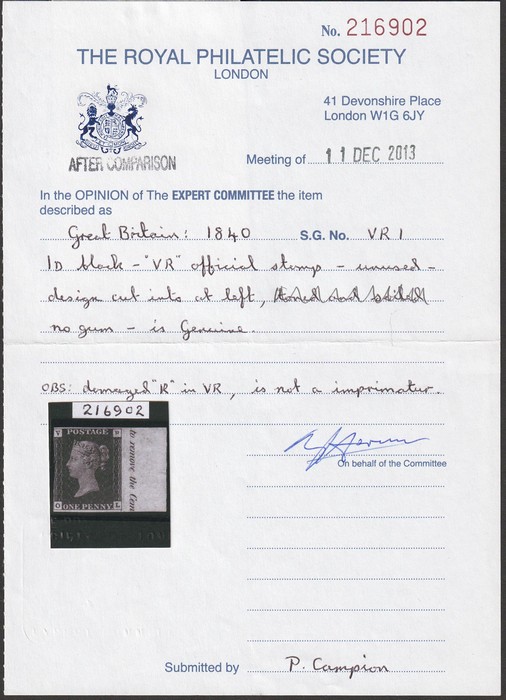 No. 216902
THE ROYAL PHILATELIC SOCIETY
LONDON
41 Devonshire Place
London W1G 6JY
AFTER COMPARISON
Meeting of 11 DEC 2013
In the OPINION of The EXPERT COMMITTEE the item
described as
Great Britain: 1840 S.G. No. VR1
1D black - "VR" official stamp - unused -
design cut into at left,
no gum - is Genuine.
OBS: damaged "R" in VR, is not a imprimatur.
216902
V POSTAGE R
to remove the Cem
O ONE PENNY L
On behalf of the Committee
Submitted by P. Campion